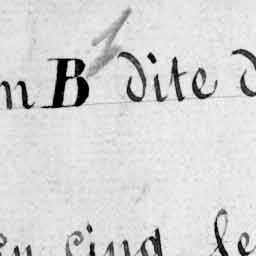 m B dite d
en cinq se